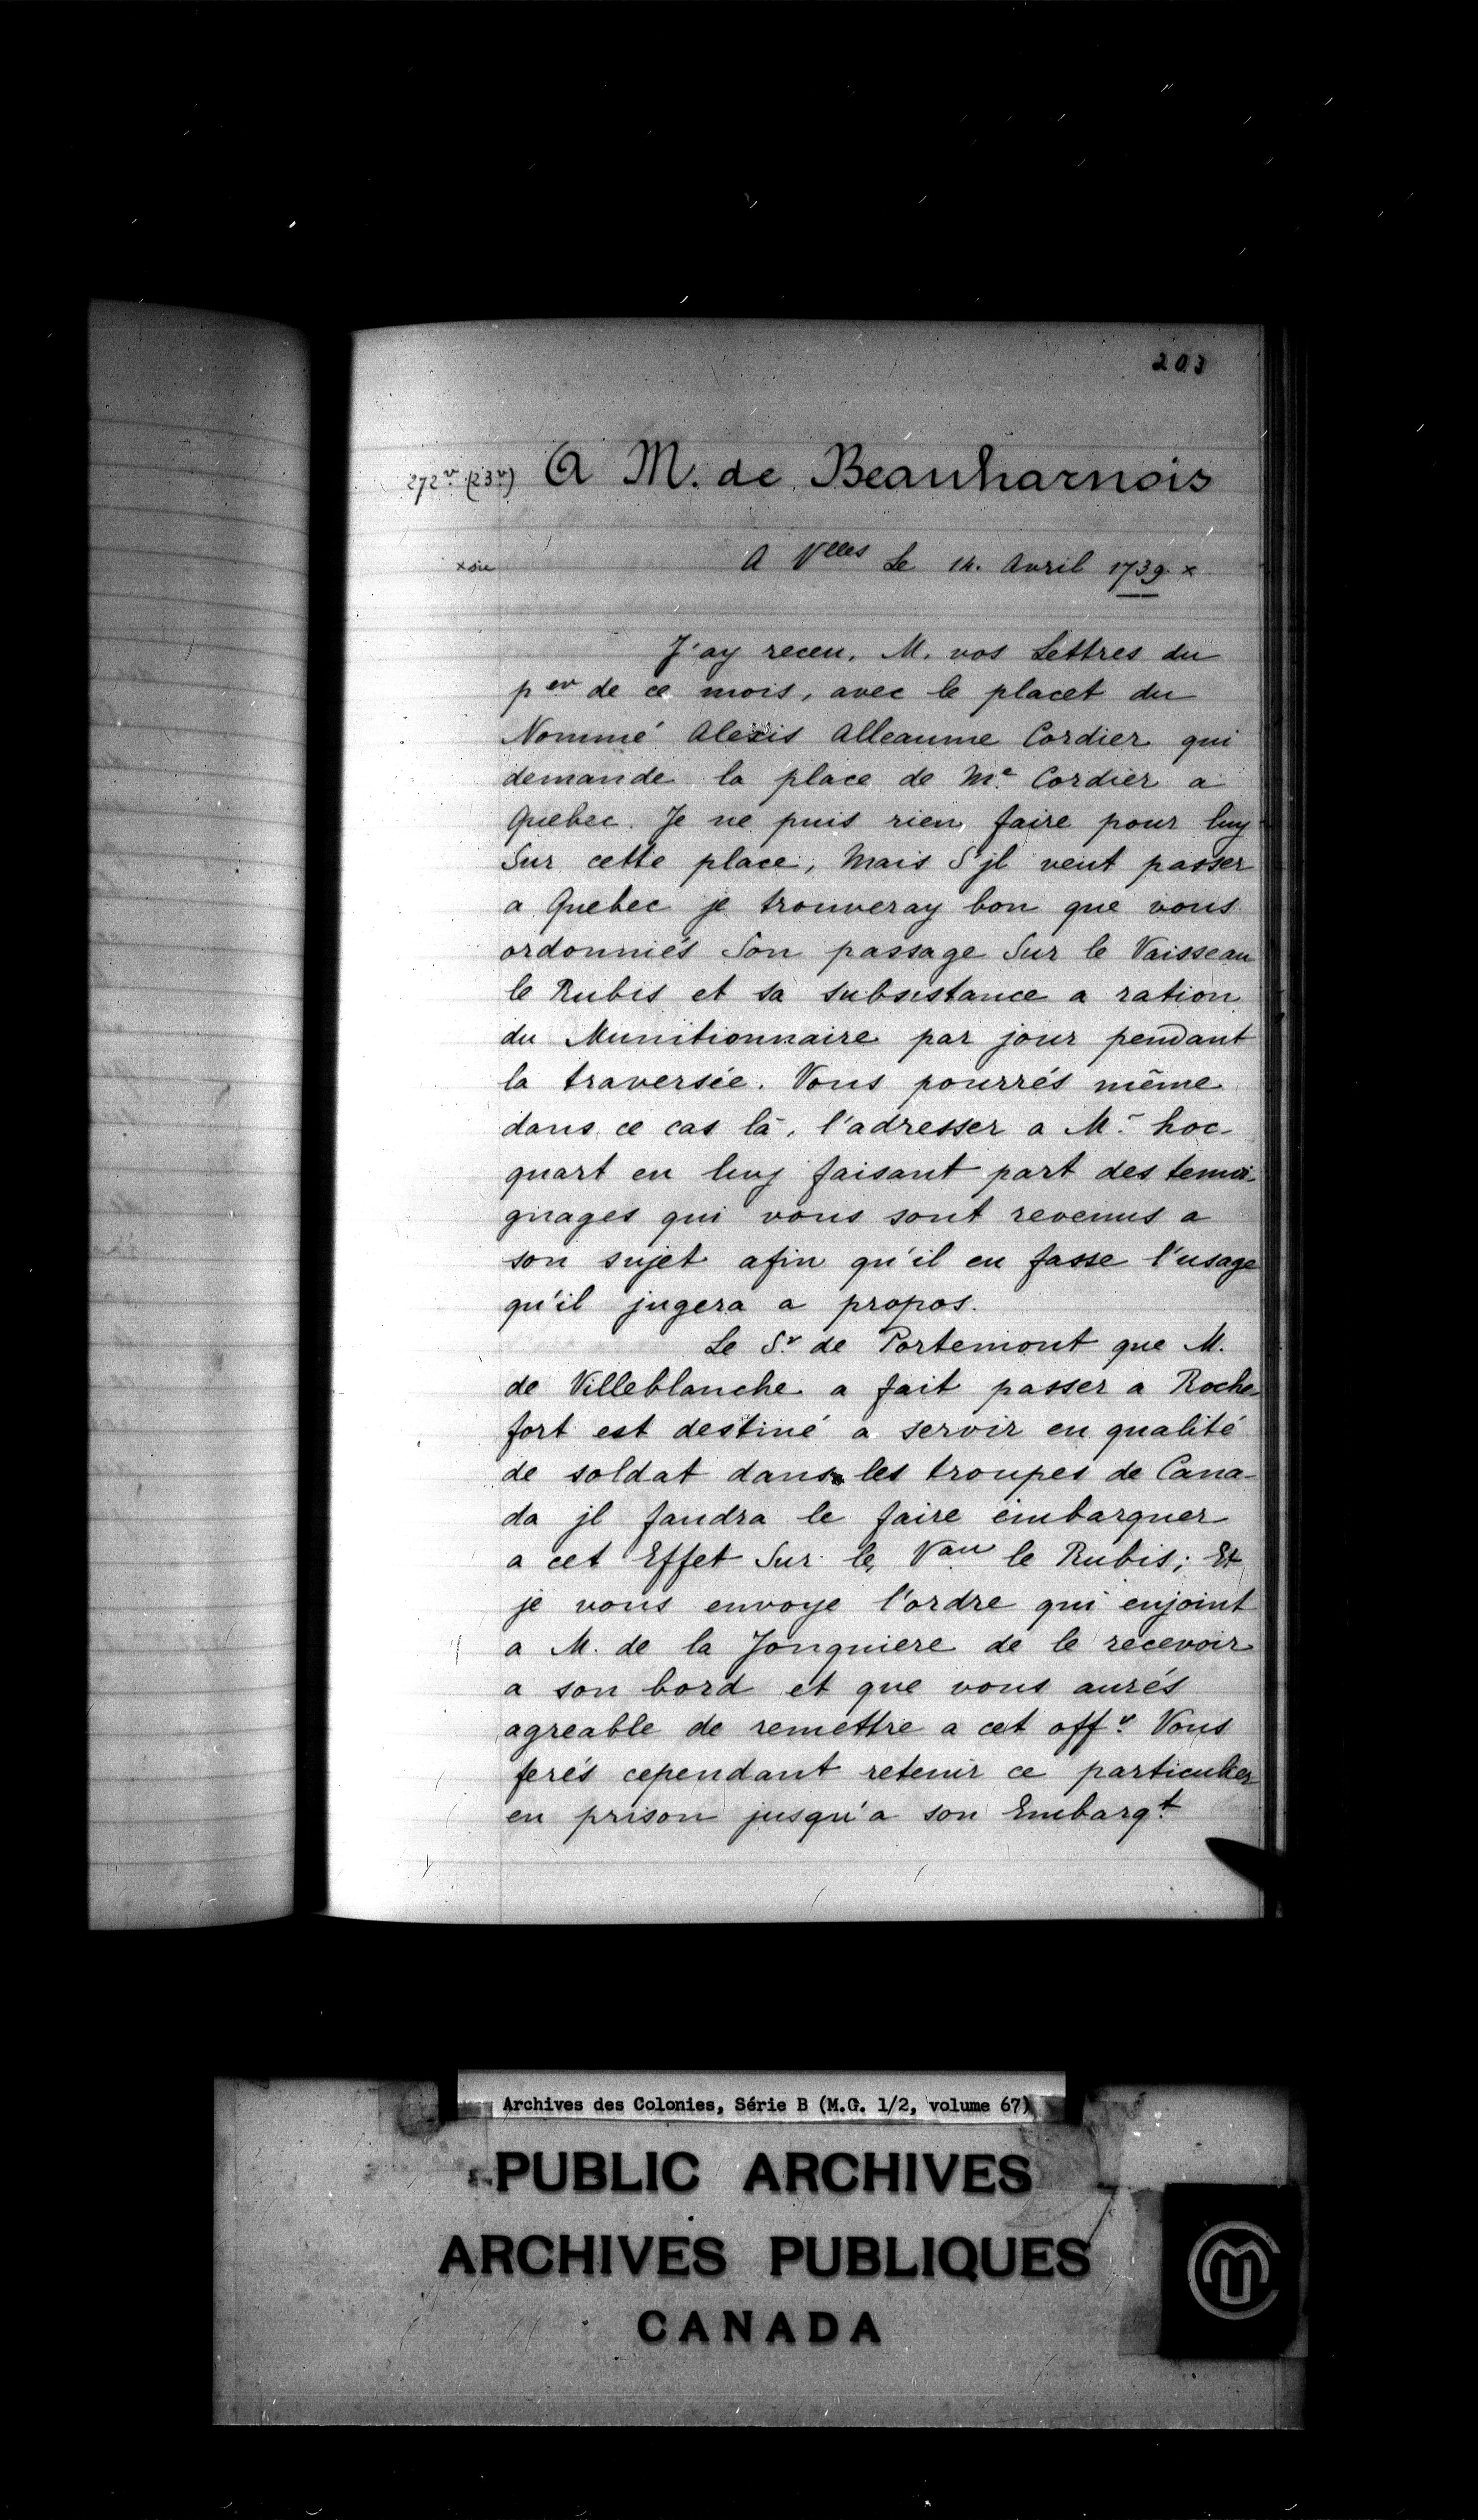 203
272v. (23v) A M. de Beauharnois
x sic A Vlles Le 14. Avril 1739. x
J'ay receu, M. vos Lettres du
per de ce mois, avec le placet du
Nommé Alexis Alleaume Cordier qui
demande la place de Me. Cordier a
Quebec. Je ne puis rien faire pour luy
Sur cette place, Mais S'jl veut passer
a Quebec je trouveray bon que vous
ordonniés Son passage Sur le Vaisseau
le Rubis et sa subsistance a ration
du Munitionnaire par jour pendant
la traversée. Vous pourrés même
dans ce cas là, l'adresser a Mr. hoc-
quart en luy faisant part des temoi-
gnages qui vous sont revenus a
son sujet afin qu'il en fasse l'usage
qu'il jugera a propos.
Le Sr. de Portemont que M.
de Villeblanche a fait passer a Roche-
fort est destiné a servir en qualité
de soldat dans les troupes de Cana-
da jl faudra le faire embarquer
a cet Effet Sur le Vau le Rubis; Et
je vous envoye l'ordre qui enjoint
a M. de la Jonquiere de le recevoir
a son bord et que vous aurés
agreable de remettre a cet offr. Vous
ferés cependant retenir ce particulier
en prison jusqu'a son Embarqt.
Archives des Colonies, Série B (M.G. 1/2, volume 67)
PUBLIC ARCHIVES
ARCHIVES PUBLIQUES
CANADA